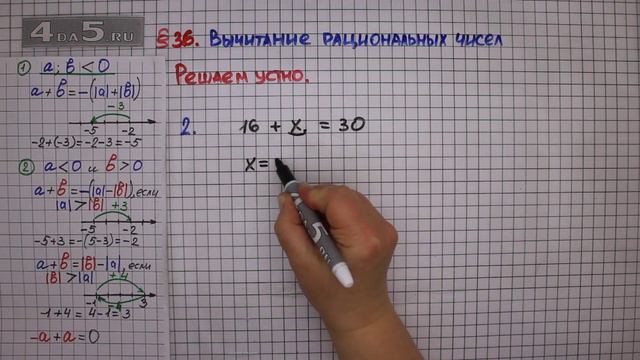 4DA5.RU
§36. Вычитание рациональных чисел
Решаем устно.
2. 16 + x = 30
x=
1) a; b < 0
a+b=-(|a|+|b|)
-3
-5 -2
-2+(-3)=-2-3=-5
2) a<0 и b>0
a+b=-(|a|-|b|), если
|a|>|b| +3
-5 -2
-5+3=-(5-3)=-2
a+b=|b|-|a|, если
|b|>|a| +4
-1 3
-1+4=4-1=3
-a+a=0